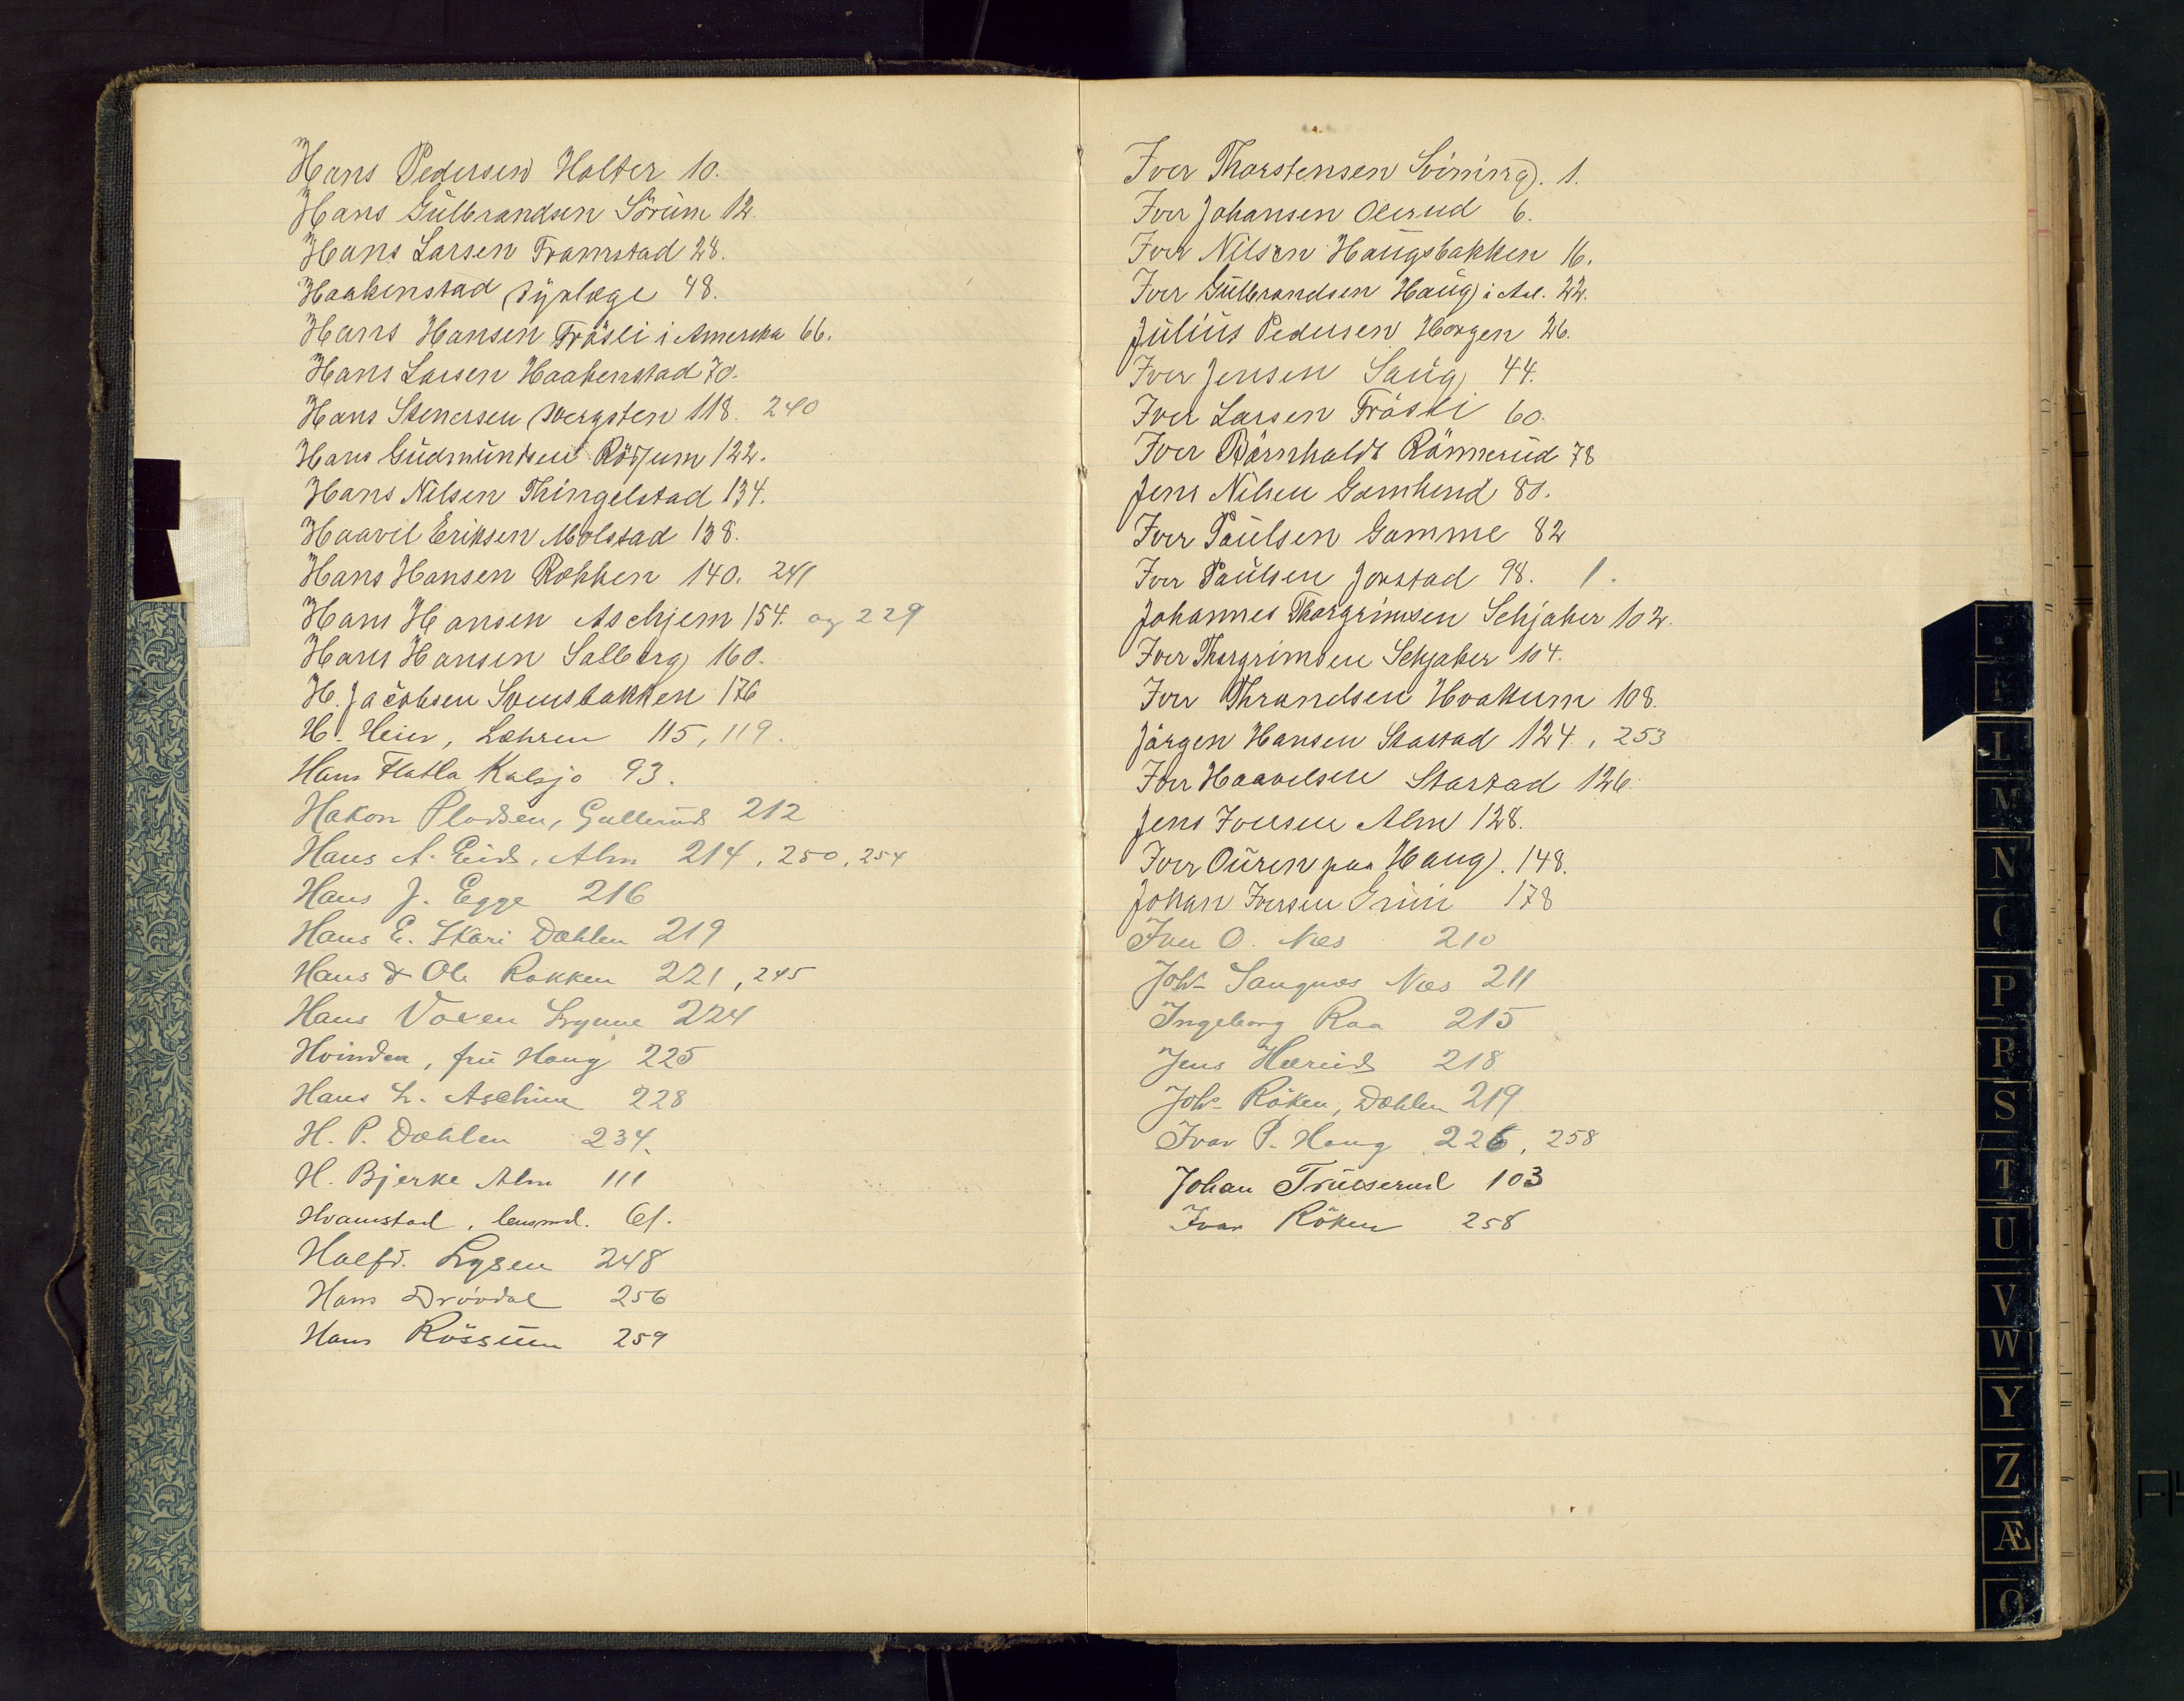 Hans Pedersen Holter 10.
Hans Gulbrandsen Sörum 12.
Hans Larsen Framstad 28.
Haakenstad Dyrlæge 48.
Hans Hansen Fröslie i Amerika 66.
Hans Larsen Haakenstad 70.
Hans Stenersen Dvergsten 118. 240
Hans Gudmundsen Rössum 122.
Hans Nilsen Thingelstad 134.
Haavel Eriksen Molstad 138.
Hans Hansen Rækken 140. 241
Hans Hansen Aschjem 154. og 229
Hans Hansen Salberg 160.
H. Jacobsen Svensbakken 176
H. Heier, Læhren 115, 119.
Hans Flatla Kalsjo 93.
Hakon Pladsen, Gullerud 212
Hans A. Eid, Alm 214, 250, 254
Hans J. Egge 216
Hans E. Skari Dæhlen 219
Hans & Ole Rækken 221, 245
Hans Voxen Lynne 224
Hvinden, fru Haug 225
Hans L. Aschim 228
H. P. Dæhlen 234.
H. Bjerke Alm 111
Hvamstad, lensmd. 61.
Halfd. Lysen 248
Hans Drövdal 256
Hans Rössum 259
Iver Thorstensen Svining. 1.
Iver Johansen Olerud 6.
Iver Nilsen Haugsbakken 16.
Iver Gulbrandsen Haug i Aal. 22.
Julius Pedersen Horgen 26.
Iver Jensen Saug 44.
Iver Larsen Fröslie 60.
Iver Börnholdt Rönnerud 78
Jens Nilsen Gamkind 80.
Iver Paulsen Gamme 82
Iver Paulsen Jorstad 98. 1.
Johannes Thorgrimsen Schjaker 102.
Iver Thorgrimsen Schjaker 104.
Iver Thrandsen Hvakum 108.
Jörgen Hansen Stastad 124., 253
Iver Haavelsen Stastad 126.
Jens Iversen Alm 128.
Iver Ouren paa Haug. 148.
Johan Iversen Grini 178
Iver O. Næs 210
Johs Sangnæs Næs 211
Ingeborg Raa 215
Jens Hærud 218
Johs Röken, Dæhlen 219
Ivar P. Haug 226, 258
Johan Trulserud 103
Ivar Röken 258
I
K
L
M
N
O
P
R
S
T
U
V
W
Y
Z
Æ
Ø